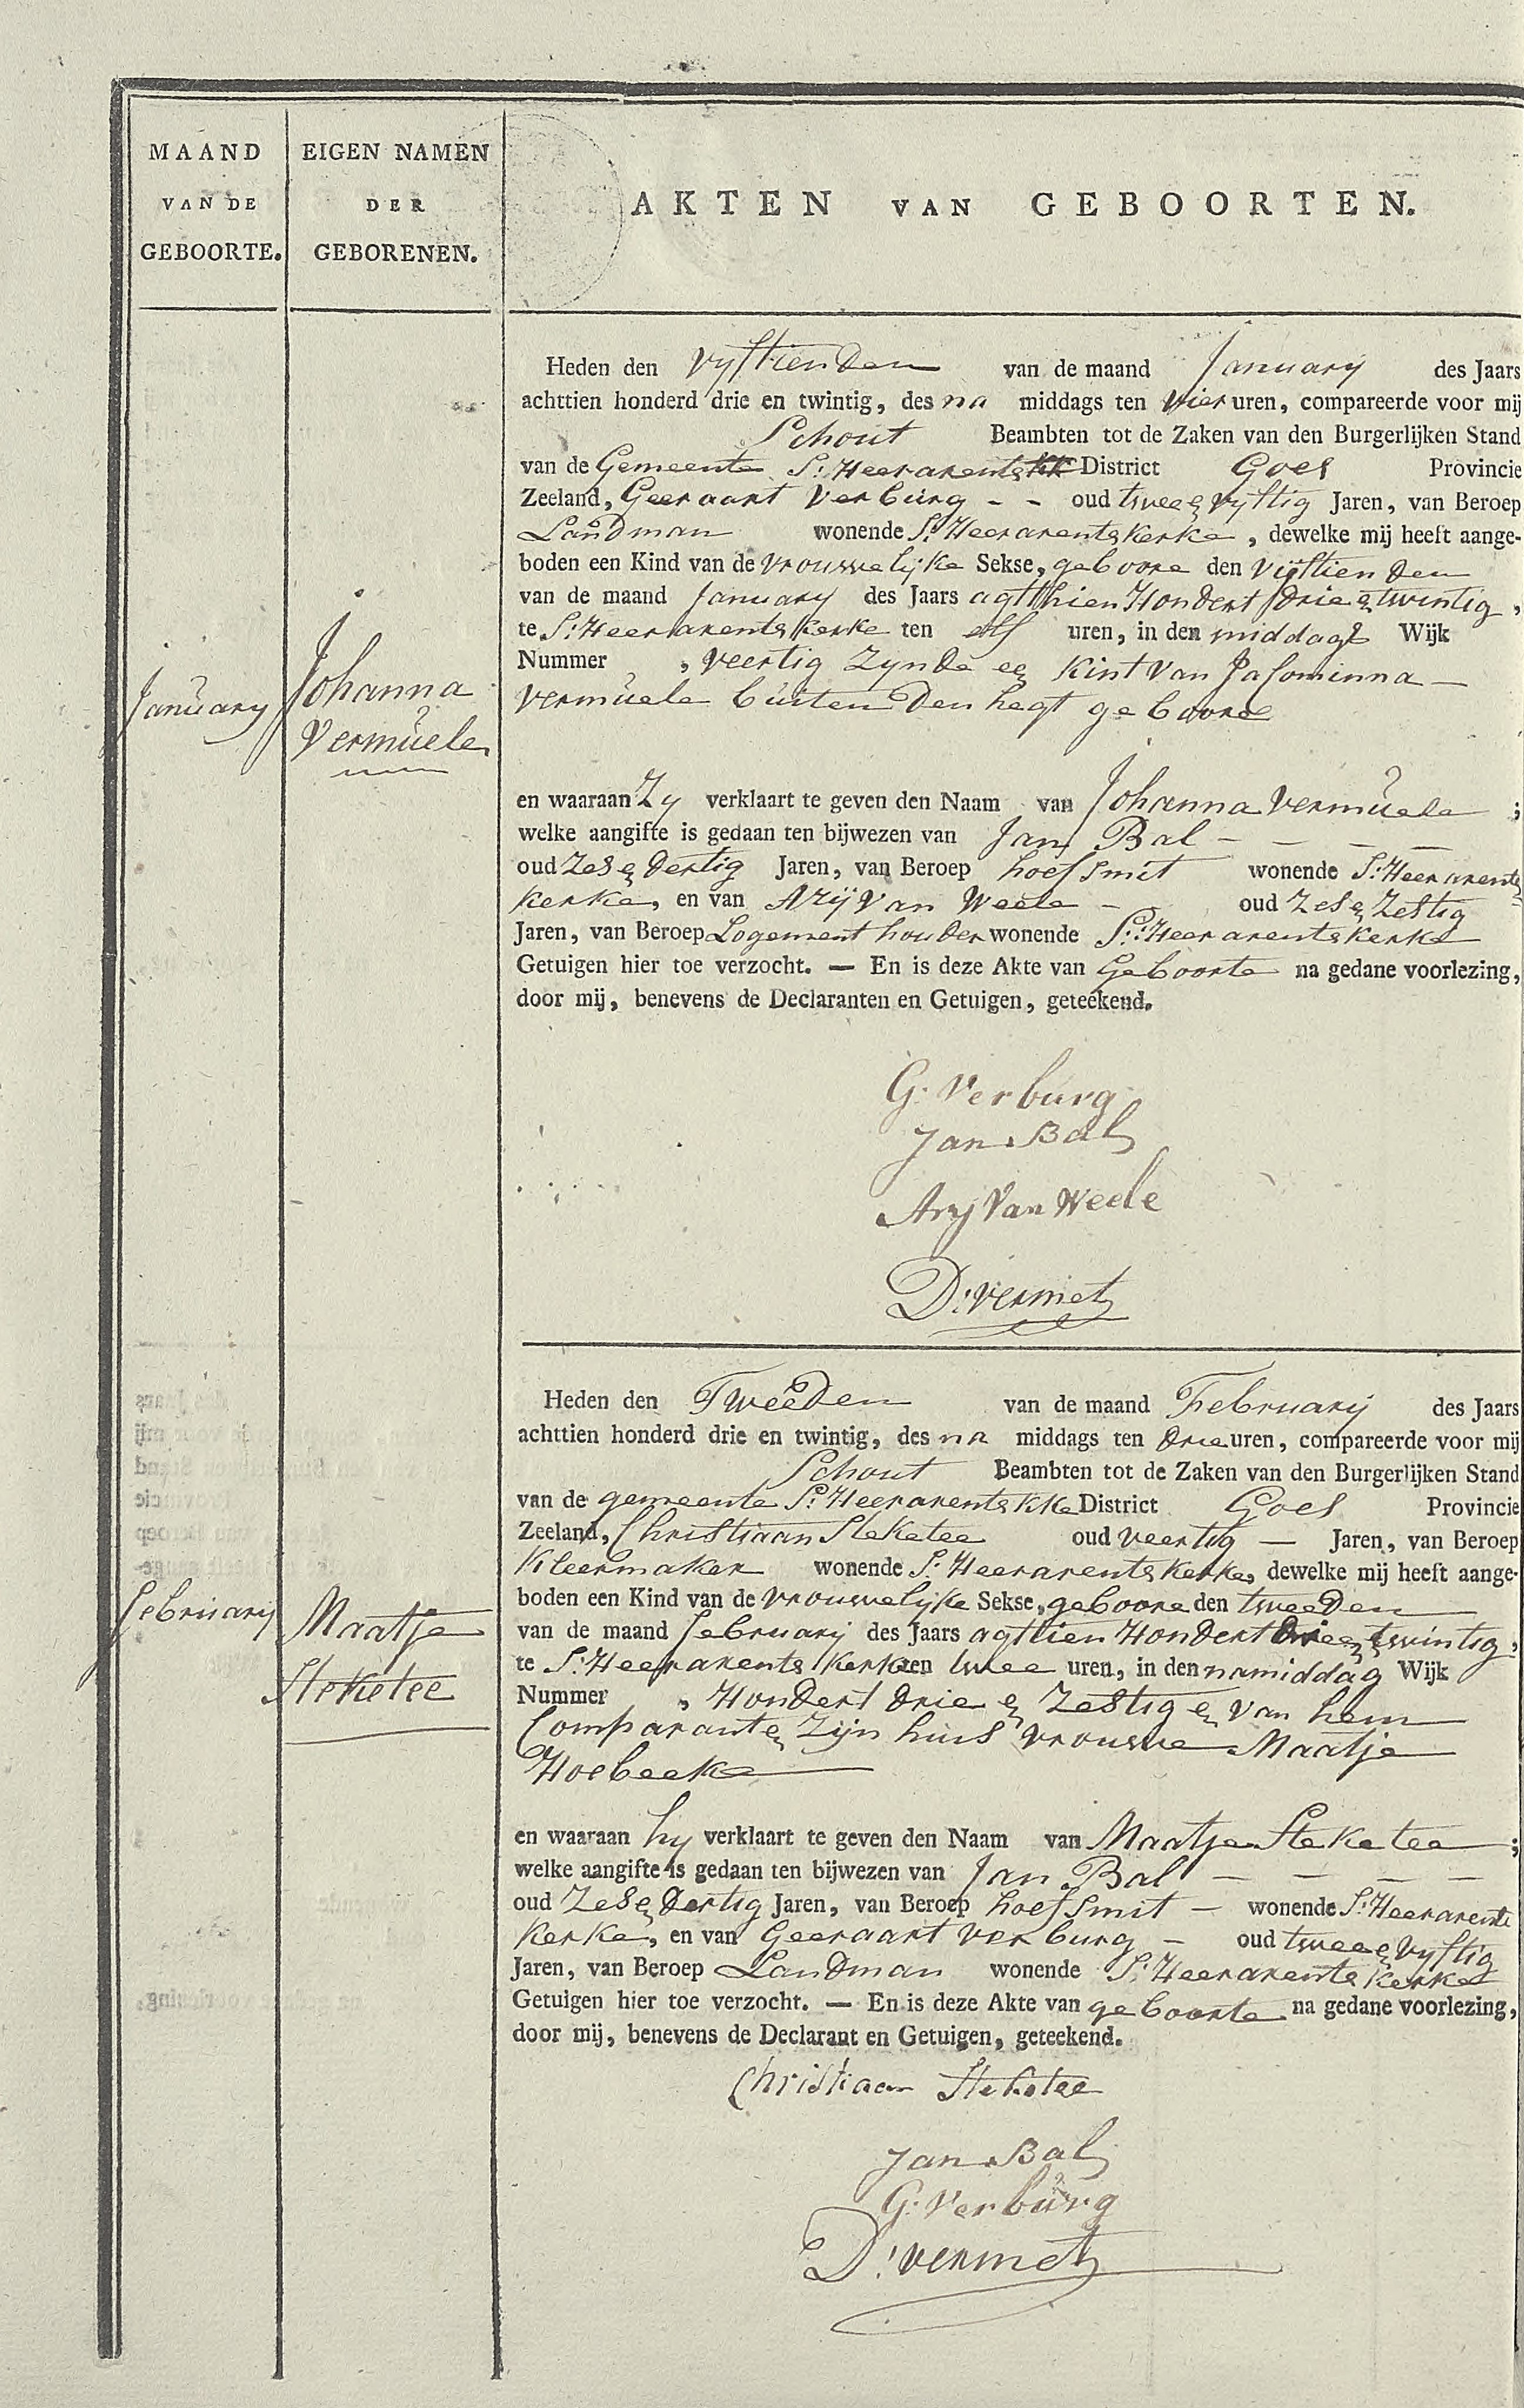 MAAND
VAN DE
GEBOORTE.
EIGEN NAMEN
DER
GEBORENEN.
AKTEN VAN GEBOORTEN.
January
Johanna
Vermuele
Heden den vyftienden van de maand January des Jaars
achttien honderd drie en twintig, des na middags ten vier uren, compareerde voor mij
Schout Beambten tot de Zaken van den Burgerlijken Stand
van de Gemeente S: Heerarentskk District Goes Provincie
Zeeland, Geeraart Verburg - - oud twee en vyftig Jaren, van Beroep
Landman wonende S: Heerarentskerke, dewelke mij heeft aange-
boden een Kind van de vrouwelijke Sekse, geboore den vijftienden
van de maand January des Jaars agtthien Hondert drie en twintig,
te S: Heerarentskerke ten elf uren, in den middags Wijk
Nummer , veertig Zynde een Kint van Jacominna —
Vermuele buiten den hegt geboore
en waaraan Zy verklaart te geven den Naam van Johanna Vermuele ;
welke aangifte is gedaan ten bijwezen van Jan Bal - - - -
oud Zes en dertig Jaren, van Beroep hoefsmit wonende S: Heerarents
kerke, en van Arij Van Weele - oud Zes en Zestig
Jaren, van Beroep Logement houder wonende S: Heerarentskerke
Getuigen hier toe verzocht. — En is deze Akte van Geboorte na gedane voorlezing,
door mij, benevens de Declaranten en Getuigen, geteekend.
G: Verburg
Jan Bal
Arij Van Weele
D: Vermet
February
Maatje
Steketee
Heden den Tweeden van de maand February des Jaars
achttien honderd drie en twintig, des na middags ten drie uren, compareerde voor mij
Schout Beambten tot de Zaken van den Burgerlijken Stand
van de gemeente S: Heerarentskke District Goes Provincie
Zeeland, Christiaan Steketee oud veertig — Jaren, van Beroep
Kleermaker wonende S: Heerarentskerke, dewelke mij heeft aange-
boden een Kind van de vrouwelijke Sekse, geboore den tweeden
van de maand February des Jaars agttien Hondert drie en twintig,
te S: Heerarentskerke ten twee uren, in den namiddag Wijk
Nummer , Hondert drie en Zestig en van hem
Comparant en Zijn huis vrouwe Maatje
Hoebeeke
en waaraan hy verklaart te geven den Naam van Maatje Steketee ;
welke aangifte is gedaan ten bijwezen van Jan Bal - - - -
oud Zes en dertig Jaren, van Beroep hoefsmit - wonende S: Heerarents
kerke, en van Geeraart Verburg - oud twee en vyftig
Jaren, van Beroep Landman wonende S: Heerarentskerke
Getuigen hier toe verzocht. — En is deze Akte van geboorte na gedane voorlezing,
door mij, benevens de Declarant en Getuigen, geteekend.
Christiaan Steketee
Jan Bal
G: Verburg
D: Vermet